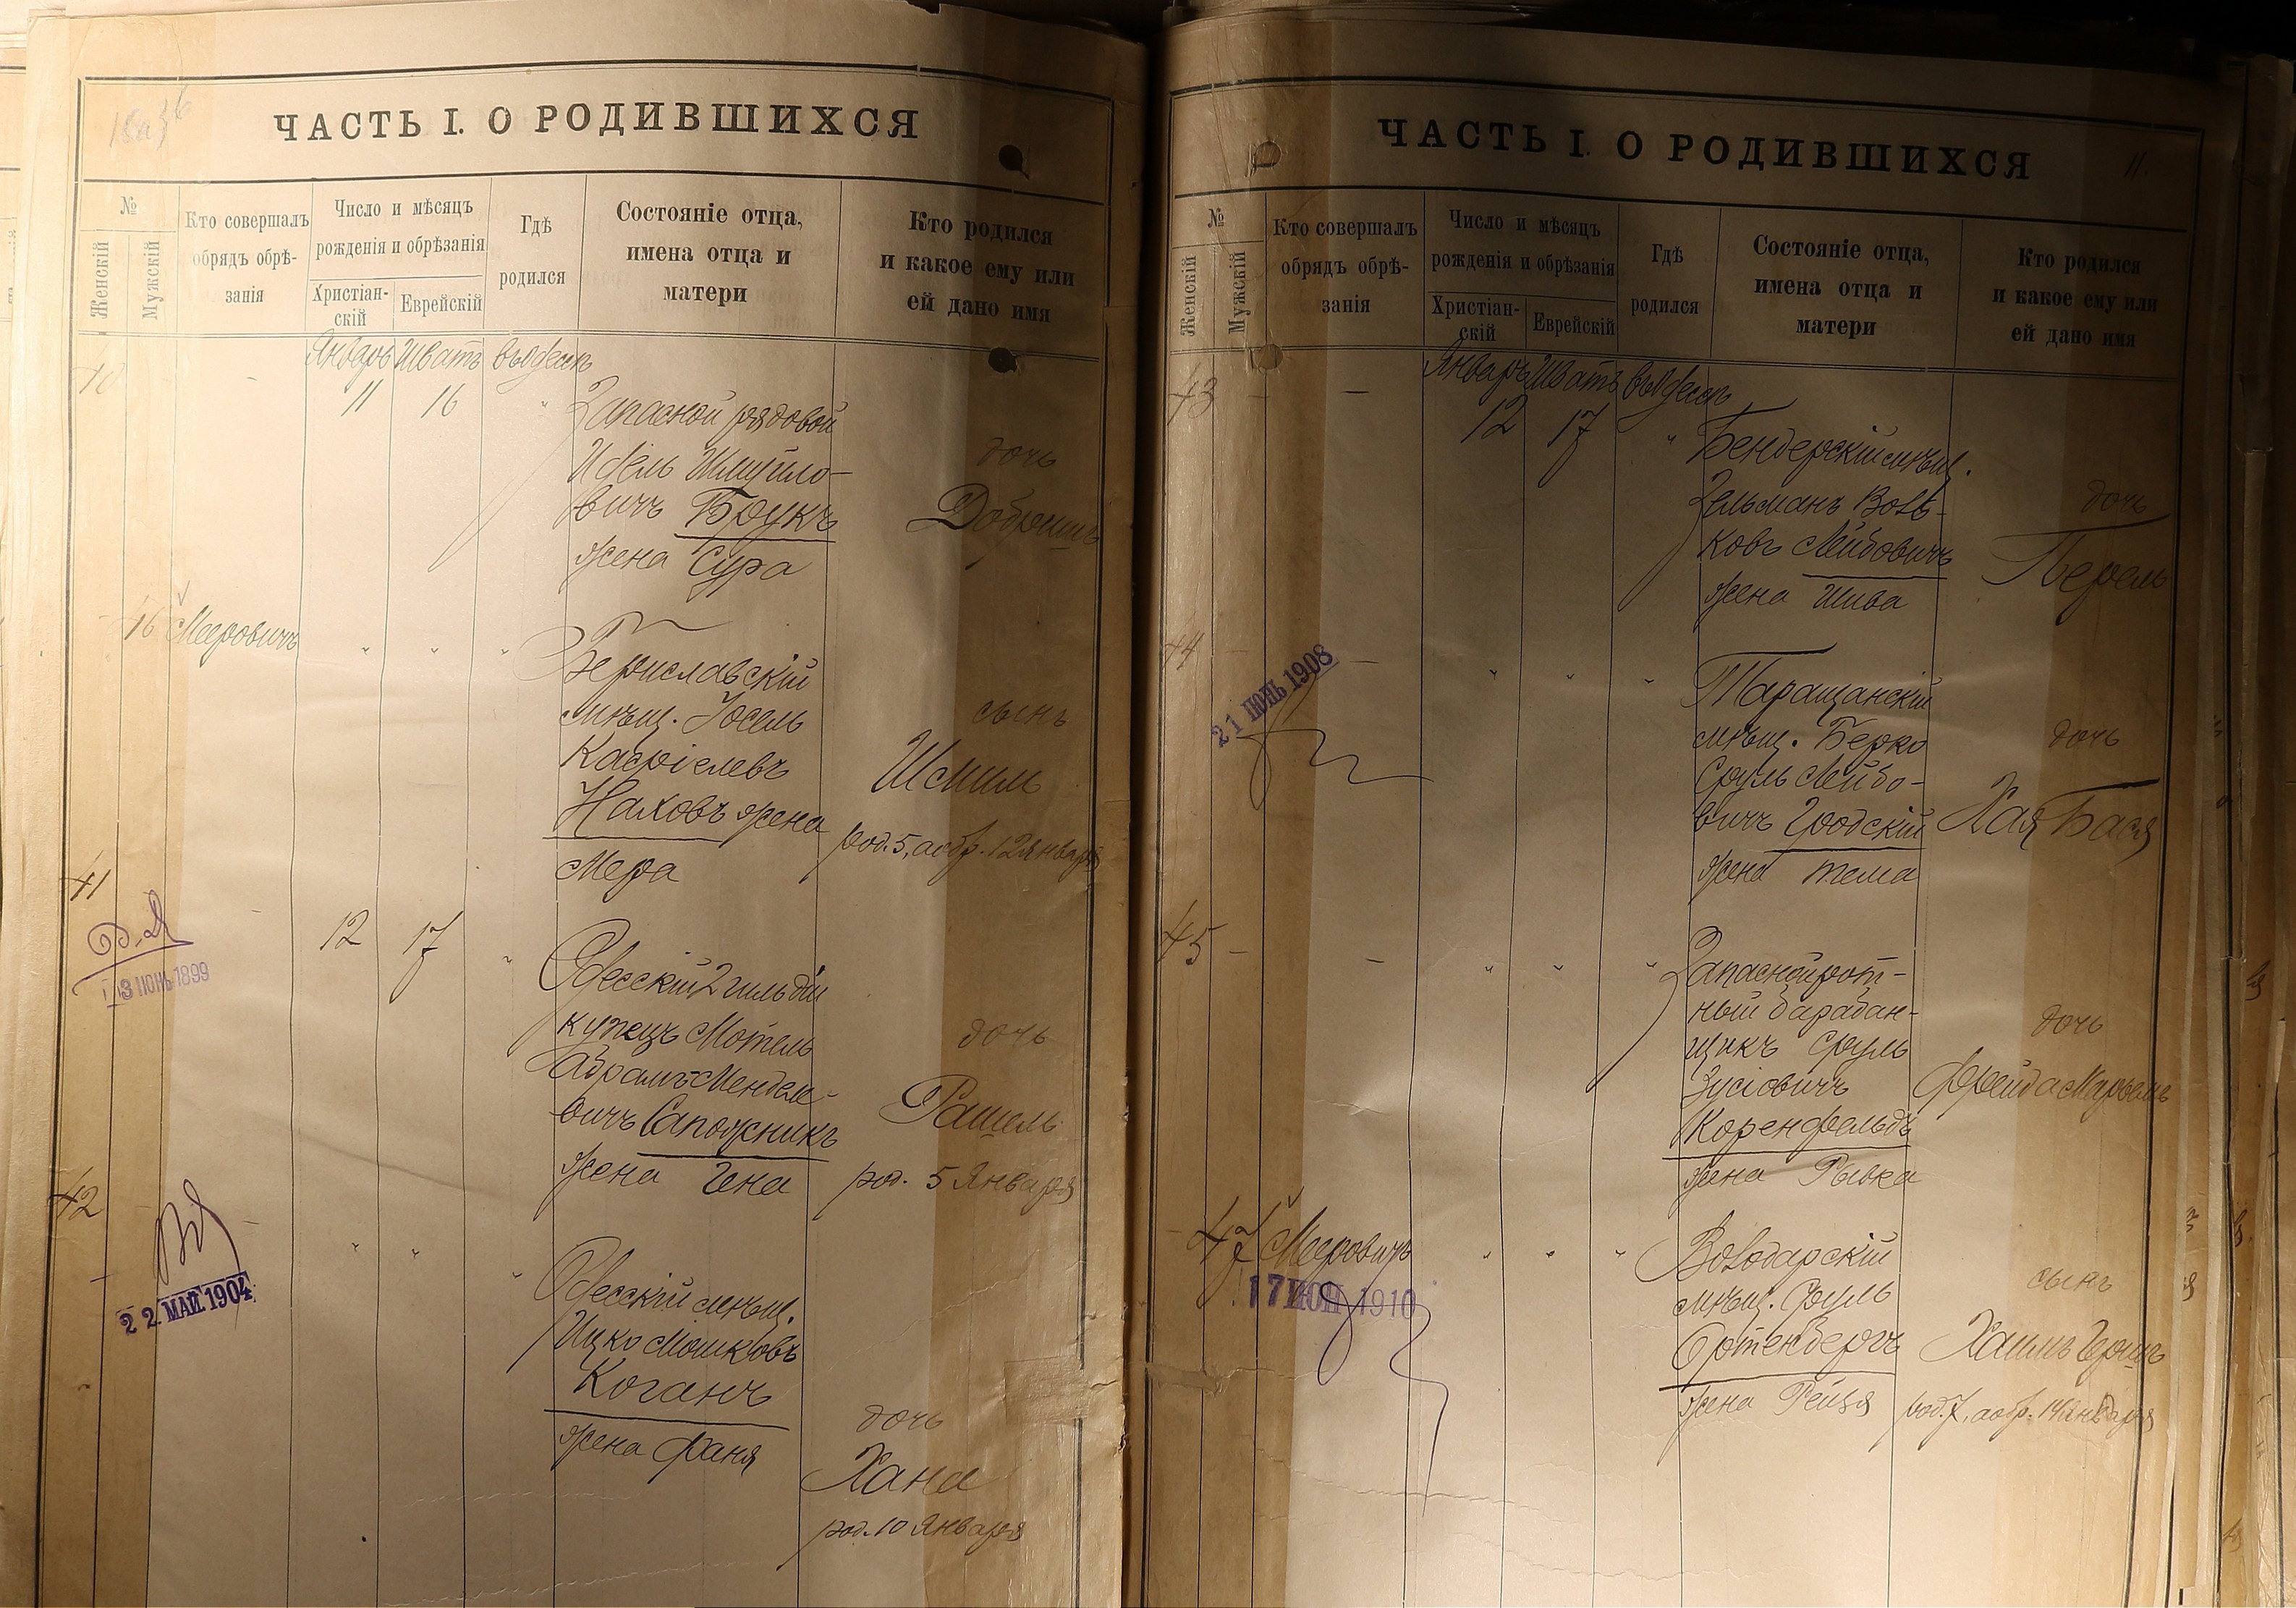 ЧАСТЬ I. О РОДИВШИХСЯ
№
Женскій
Мужскій
Кто совершалъ
обрядъ обрѣ-
занія
Число и мѣсяцъ
рожденія и обрѣзанія
Христіан-
скій
Еврейскій
Гдѣ
родился
Состояніе отца,
имена отца и
матери
Кто родился
и какое ему или
ей дано имя
Январь Шватъ въ Одессѣ
11 16 "
Запасной рядовой
Идель Шмуйло-
вичъ Брукъ
жена Сура
дочь
Добришъ
46 Мееровичъ " " "
Бериславскій
мѣщ. Іосель
Касріелевъ
Наховъ жена
Мера
сынъ
Шмиль
род. 5, а обр. 12 Января
41 - 12 17 "
Одесскій 2 гильдіи
купецъ Мотель
Абрамъ Менделе-
вичъ Сапожникъ
жена Гена
дочь
Рашель
род. 5 Января
3 ІЮНЬ 1899
42 - " " "
Одесскій мѣщ.
Ицко Мошковъ
Коганъ
жена Фаня
дочь
Хана
род. 10 Января
22. МАЙ. 1904
ЧАСТЬ I. О РОДИВШИХСЯ
11
№
Женскій
Мужскій
Кто совершалъ
обрядъ обрѣ-
занія
Число и мѣсяцъ
рожденія и обрѣзанія
Христіан-
скій
Еврейскій
Гдѣ
родился
Состояніе отца,
имена отца и
матери
Кто родился
и какое ему или
ей дано имя
Январь Шватъ въ Одессѣ
43 - - 12 17 "
Бендерскій мѣщ.
Зельманъ Воль-
ковъ Лейбовичъ
жена Шива
дочь
Перель
44 - - " " "
Таращанскій
мѣщ. Берко
Сруль Лейбо-
вичъ Гродскій
жена Тема
дочь
Хая Бася
21 ІЮНЬ 1908
45 - - " " "
Запасной рот-
ный барабан-
щикъ Сруль
Зусіовичъ
Коренфельдъ
жена Рывка
дочь
Фрейда Марьемъ
- 47 Мееровичъ " " "
Володарскій
мѣщ. Сруль
Ортенбергъ
жена Рейзя
сынъ
Хаимъ Гершъ
род. 7, а обр. 14 Января
17 ИЮН 1910